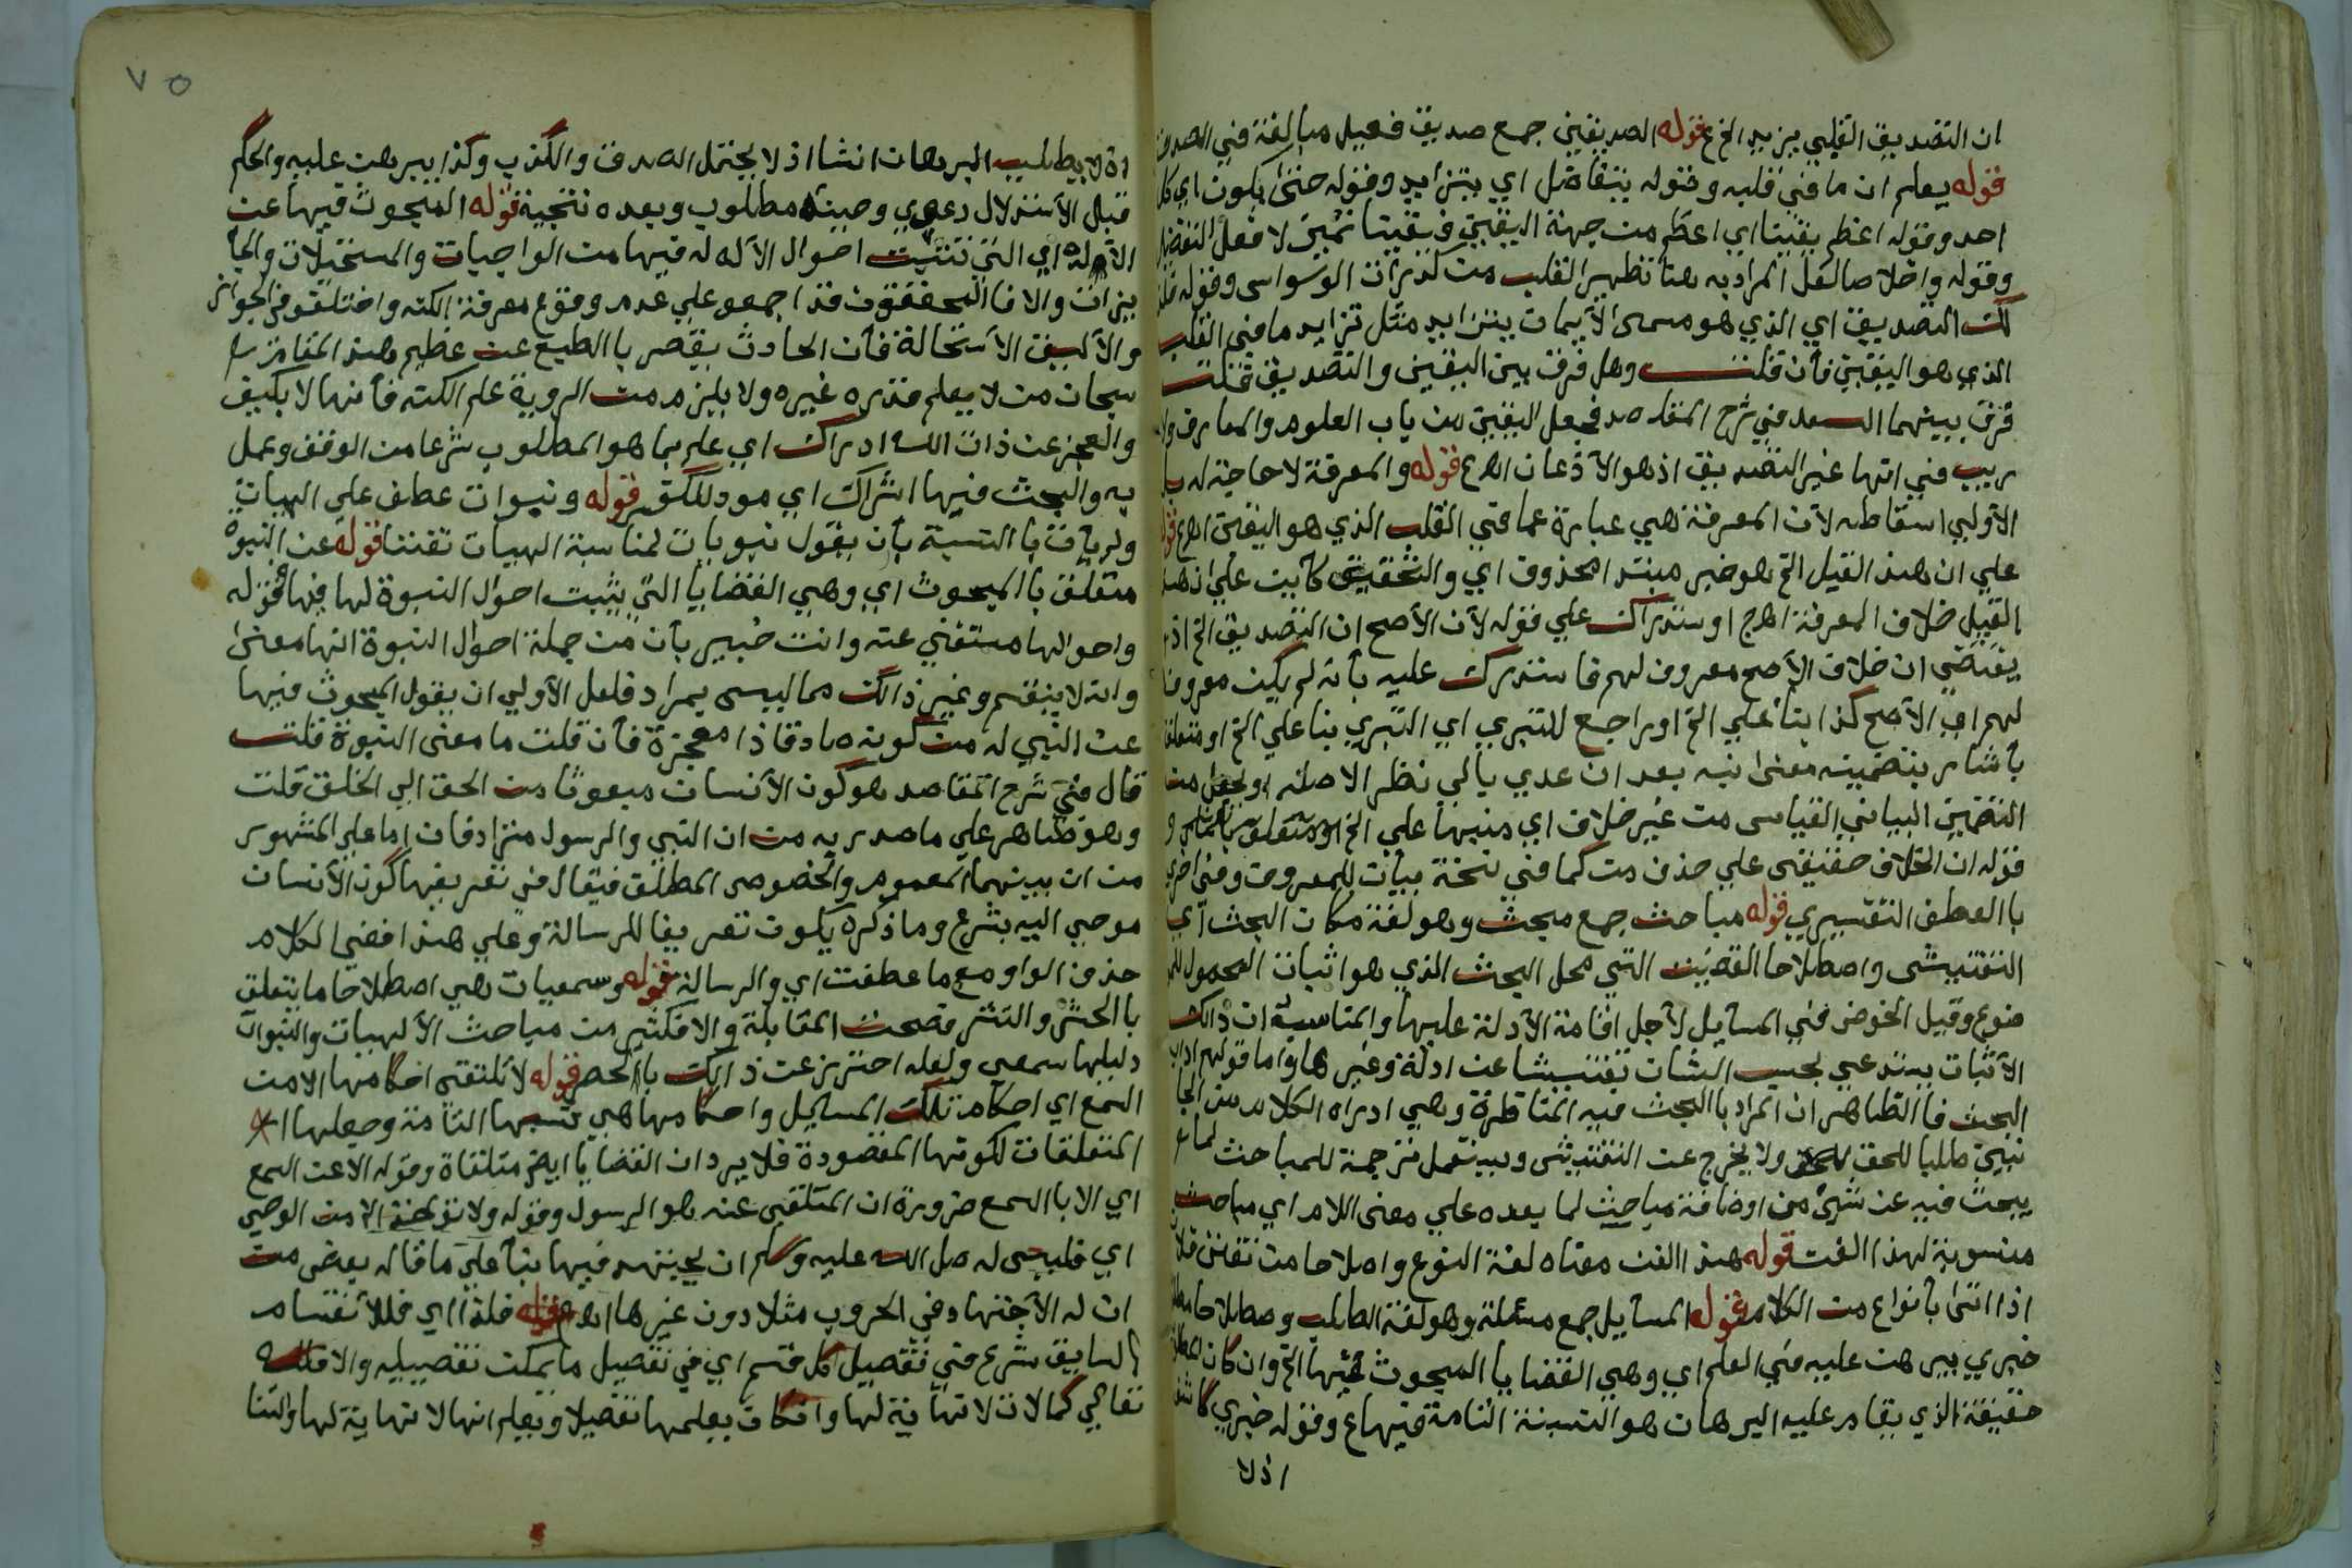 ان التصديق القلبي يزيد الخ ع قوله الصديقين جمع صديق فعيل مبالغة في الصدق
قوله يعلم ان ما في قلبه وقوله يتفاضل اي يتزايد وقوله حتى يكون اي كل
احد وقوله اعظم يقينا اي اعظم من جهة اليقين فيقينا تمييز لا فعل التفضيل
وقوله واخلاصا لعل المراد به هنا تطهير القلب من كدرات الوسواس وقوله
لك التصديق اي الذي هو مسمى الأيمان يتزايد مثل تزايد ما في القلب
الذي هو اليقين فأن قلت وهل فرق بين اليقين والتصديق قلت
فرق بينهما السعد في شرح المقاصد فجعل اليقين من باب العلوم والمعارف ولا
ريب في انها غير التصديق اذ هو الأذعان اهـ ع قوله والمعرفة لا حاجة له بل
الأولي اسقاطه لأن المعرفة هي عبارة عما في القلب الذي هو اليقين اهـ ع قوله
علي ان هذا القيل الخ هو خبر مبتدا محذوف اي والتحقيق كأين علي ان هذا
القيل خلاف المعرفة اهـ ج او ستدراك علي قوله لأن الأصح ان التصديق الخ اذ
يقتضي ان خلاف الأصح معروف لهم فاستدرك عليه بأنه لم يكن معروفا
لهم اي الأصح كذا بنأ علي الخ او راجع للتبري اي التبري بنا علي الخ او متعلقا
بأشار بتضمينه معنى نبه بعد ان عدي بالي نظر الاصله او لجعل من
التضمين البياني القياسى من غير خلاف اي منبها علي الخ او متعلق و
قوله ان الخلاف حقيقي علي حذف من كما في نسخة مبأين للمعروف وفي اخرى
با العطف التفسيري قوله مباحث جمع مبحث وهو لغة مكان البحث أي
التفتيش واصطلاحا القضية التي محل البحث الذي هو اثبات المحمول للمو
ضوع وقيل الخوض في المسأيل لأجل اقامة الأدلة عليها والمناسبة ان ذالك
الأثبات يستدعي بحسب الشان تفتيشا عن ادلة وغيرها واما قولهم اداب
البحث فا الظاهر ان المراد با البحث فيه المناظرة وهي ادراه الكلام من الجا
نبين طلبا للحق ولا يخرج عن التفتيش ويستعمل ترجمة للمباحث لما
يبحث فيه عن شيئ من اوضافة مباحث لما بعده علي معنى اللام اي مباحث
منسوبة لهذا الفن قوله هذا الفن معناه لغة النوع واصلاحا من تفنن فلان
اذا اتى بأنواع من الكلام قوله المسأيل جمع مسئلة وهو لغة الطلب وصطلاحا مطلوب
خبري يبرهن عليه في العلم اي وهي القضايا المبحوث عنها الخ وان كان
حقيقة الذي يقام عليه البرهان هو النسبة التامة فيها ع وقوله خبري
اذ لا
٧٥
اذ لا يطلب البرهان انشا اذ لا يحتمل الصدق والكذب وكذا يبرهن عليه والحكم
قبل الأستدلال دعوي وحينئذ مطلوب وبعده نتجية قوله المبحوث فيها عن
الأوله اي التي تثبت احوال الأله له فيها من الواجبات والمستحيلات والجأ
يزات والا فا المحققون قد اجمعو علي عدم وقوع معرفة الكنه واختلفو في الجواز
والأليق الأستحالة فأن الحادث يقصر با الطبع عن عظيم هذا المقام
سبحان من لا يعلم قدره غيره ولا يلزم من الروية علم الكنه فأنها لا بكيف
والعجز عن ذات الله ادراك اي علم بما هو المطلوب شرعا من الوقف وعمل
به والبحث فيها اشراك اي مود للكفر قوله ونبوات عطف علي الهيات
ولم يأت با النسبة بأن يقول نبويات لمناسبة الهيات تفننا قوله عن النبوة
متعلق با المبحوث اي وهي القضايا التي يثبت احوال النبوة لها فيها فقوله
واحوالها مستغني عنه وانت خبير بأن من جملة احوال النبوة انها معنى
وانه لا ينقسم وغير ذالك مما ليسى بمراد فلعل الأولي ان يقول المبحوث فيها
عن النبي له من كونه صادقا ذا معجزة فأن قلت ما معنى النبوة قلت
قال في شرح المقاصد هو كون الأنسان مبعوثا من الحق الي الخلق قلت
وهو ظاهر علي ما صدر به من ان النبي والرسول متزادفان اما علي المشهور
من ان بينهما العموم والخصوص المطلق فيقال في تعريفها كون الأنسان
موحي اليه بشرع وما ذكره يكون تعريفا للرسالة وعلي هذا ففي الكلام
حذف الواو مع ما عطفت اي والرسالة قوله وسمعيات هي اصطلاحا ما يتعلق
با الحشر والنشر فصحت المقابلة والا فكثير من مباحث الألهيات والنبوات
دليلها سمعي ولعله احترز عن ذالك با الحصر قوله لا تتلقى احكامها الا من
السمع اي احكام تلك المسأيل واحكامها هي نسبها التامة وجعلها
المتعلقات لكونها المقصودة فلا يرد ان القضايا ايضا متلقاة وقوله الا عن السمع
اي الا با السمع ضرورة ان المتلقي عنه هو الرسول وقوله ولا تؤخذ الا من الوحي
اي فليسى له صل الله عليه وسلم ان يجتهد فيها بنأ علي ما قاله بعض من
ان له الأجتهاد في الحروب مثلا دون غيرها اهـ قوله فلذا اي فللأنقسام
السابق شرع في تفصيل كل قسم اي في تفصيل ما يمكن تفصيله والا فلله
تعالي كمالات لا نهأية لها وان كان يعلمها تفصيلا ويعلم انها لا نهاية لها ولكنا